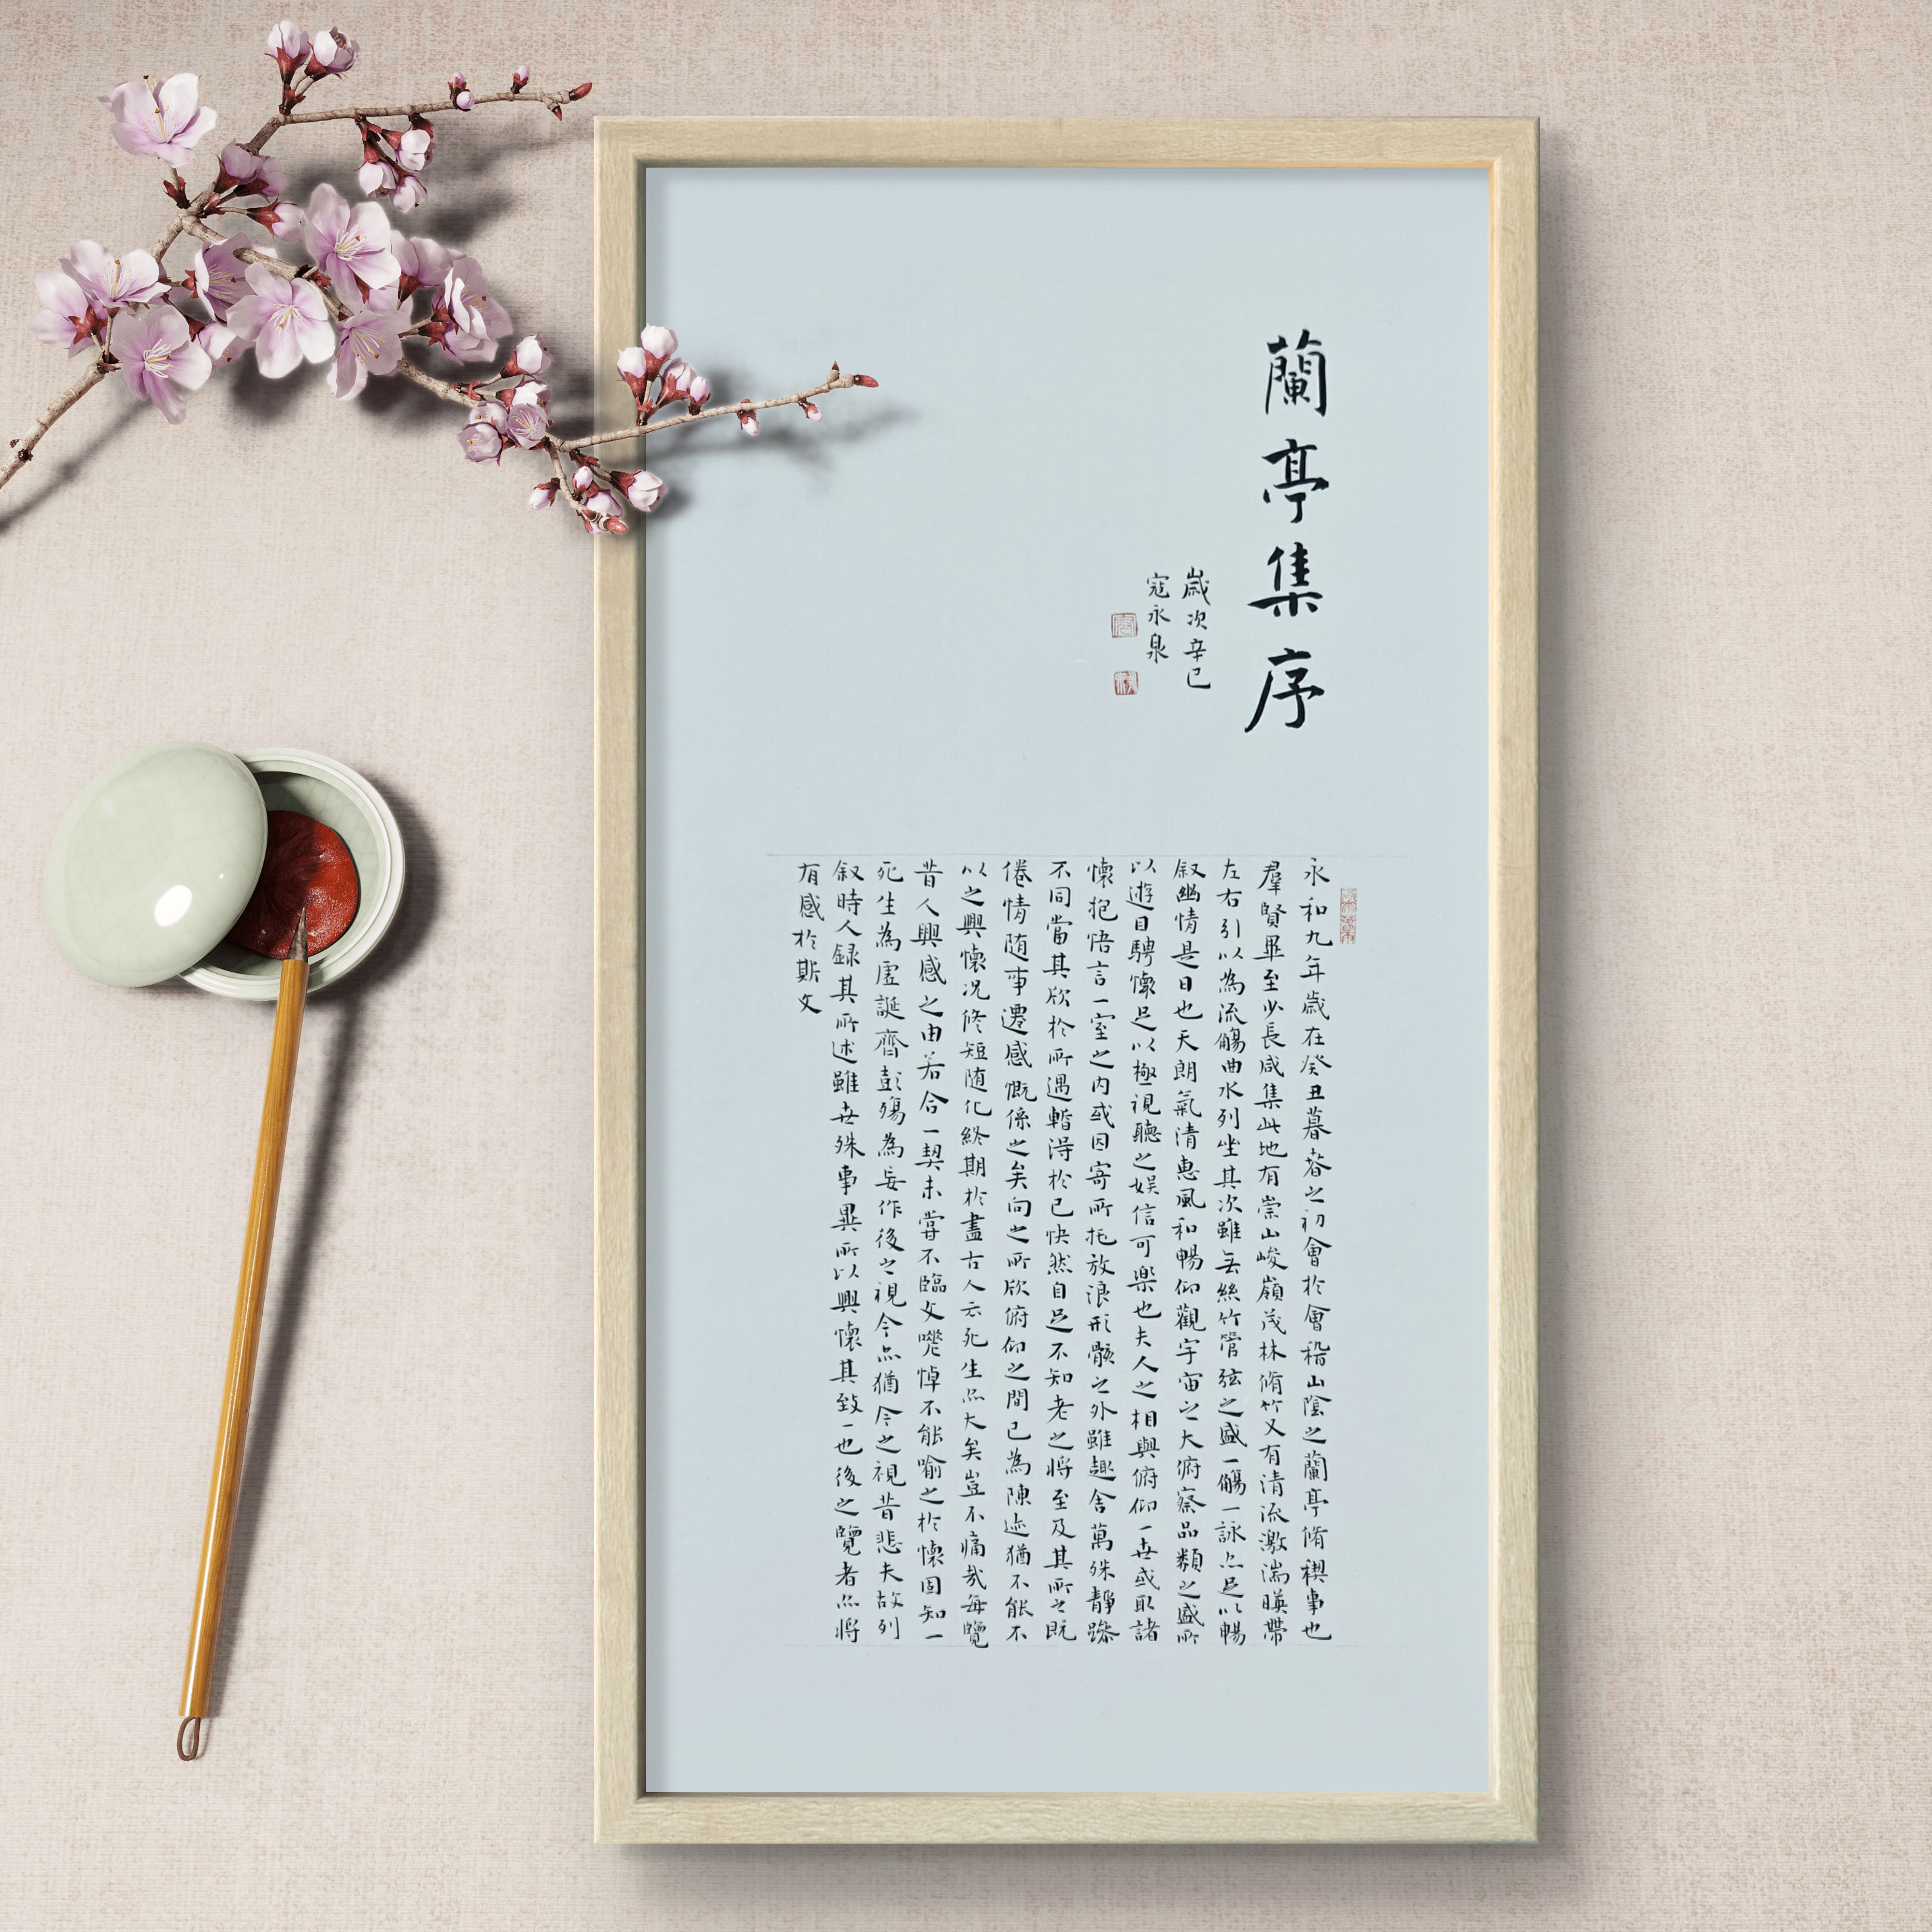 蘭亭集序
歲次辛巳
寇永泉
永和九年歲在癸丑暮春之初會於會稽山陰之蘭亭脩禊事也
羣賢畢至少長咸集此地有崇山峻嶺茂林脩竹又有清流激湍暎帶
左右引以為流觴曲水列坐其次雖無絲竹管弦之盛一觴一詠亦足以暢
叙幽情是日也天朗氣清惠風和暢仰觀宇宙之大俯察品類之盛所
以遊目騁懷足以極視聽之娛信可樂也夫人之相與俯仰一世或取諸
懷抱悟言一室之内或因寄所托放浪形骸之外雖趣舍萬殊靜躁
不同當其欣於所遇暫得於己快然自足不知老之將至及其所之既
倦情随事遷感慨係之矣向之所欣俯仰之間已為陳迹猶不能不
以之興懷況修短随化終期於盡古人云死生亦大矣豈不痛哉每覽
昔人興感之由若合一契未嘗不臨文嗟悼不能喻之於懷固知一
死生為虛誕齊彭殤為妄作後之視今亦猶今之視昔悲夫故列
叙時人録其所述雖世殊事異所以興懷其致一也後之覽者亦將
有感於斯文